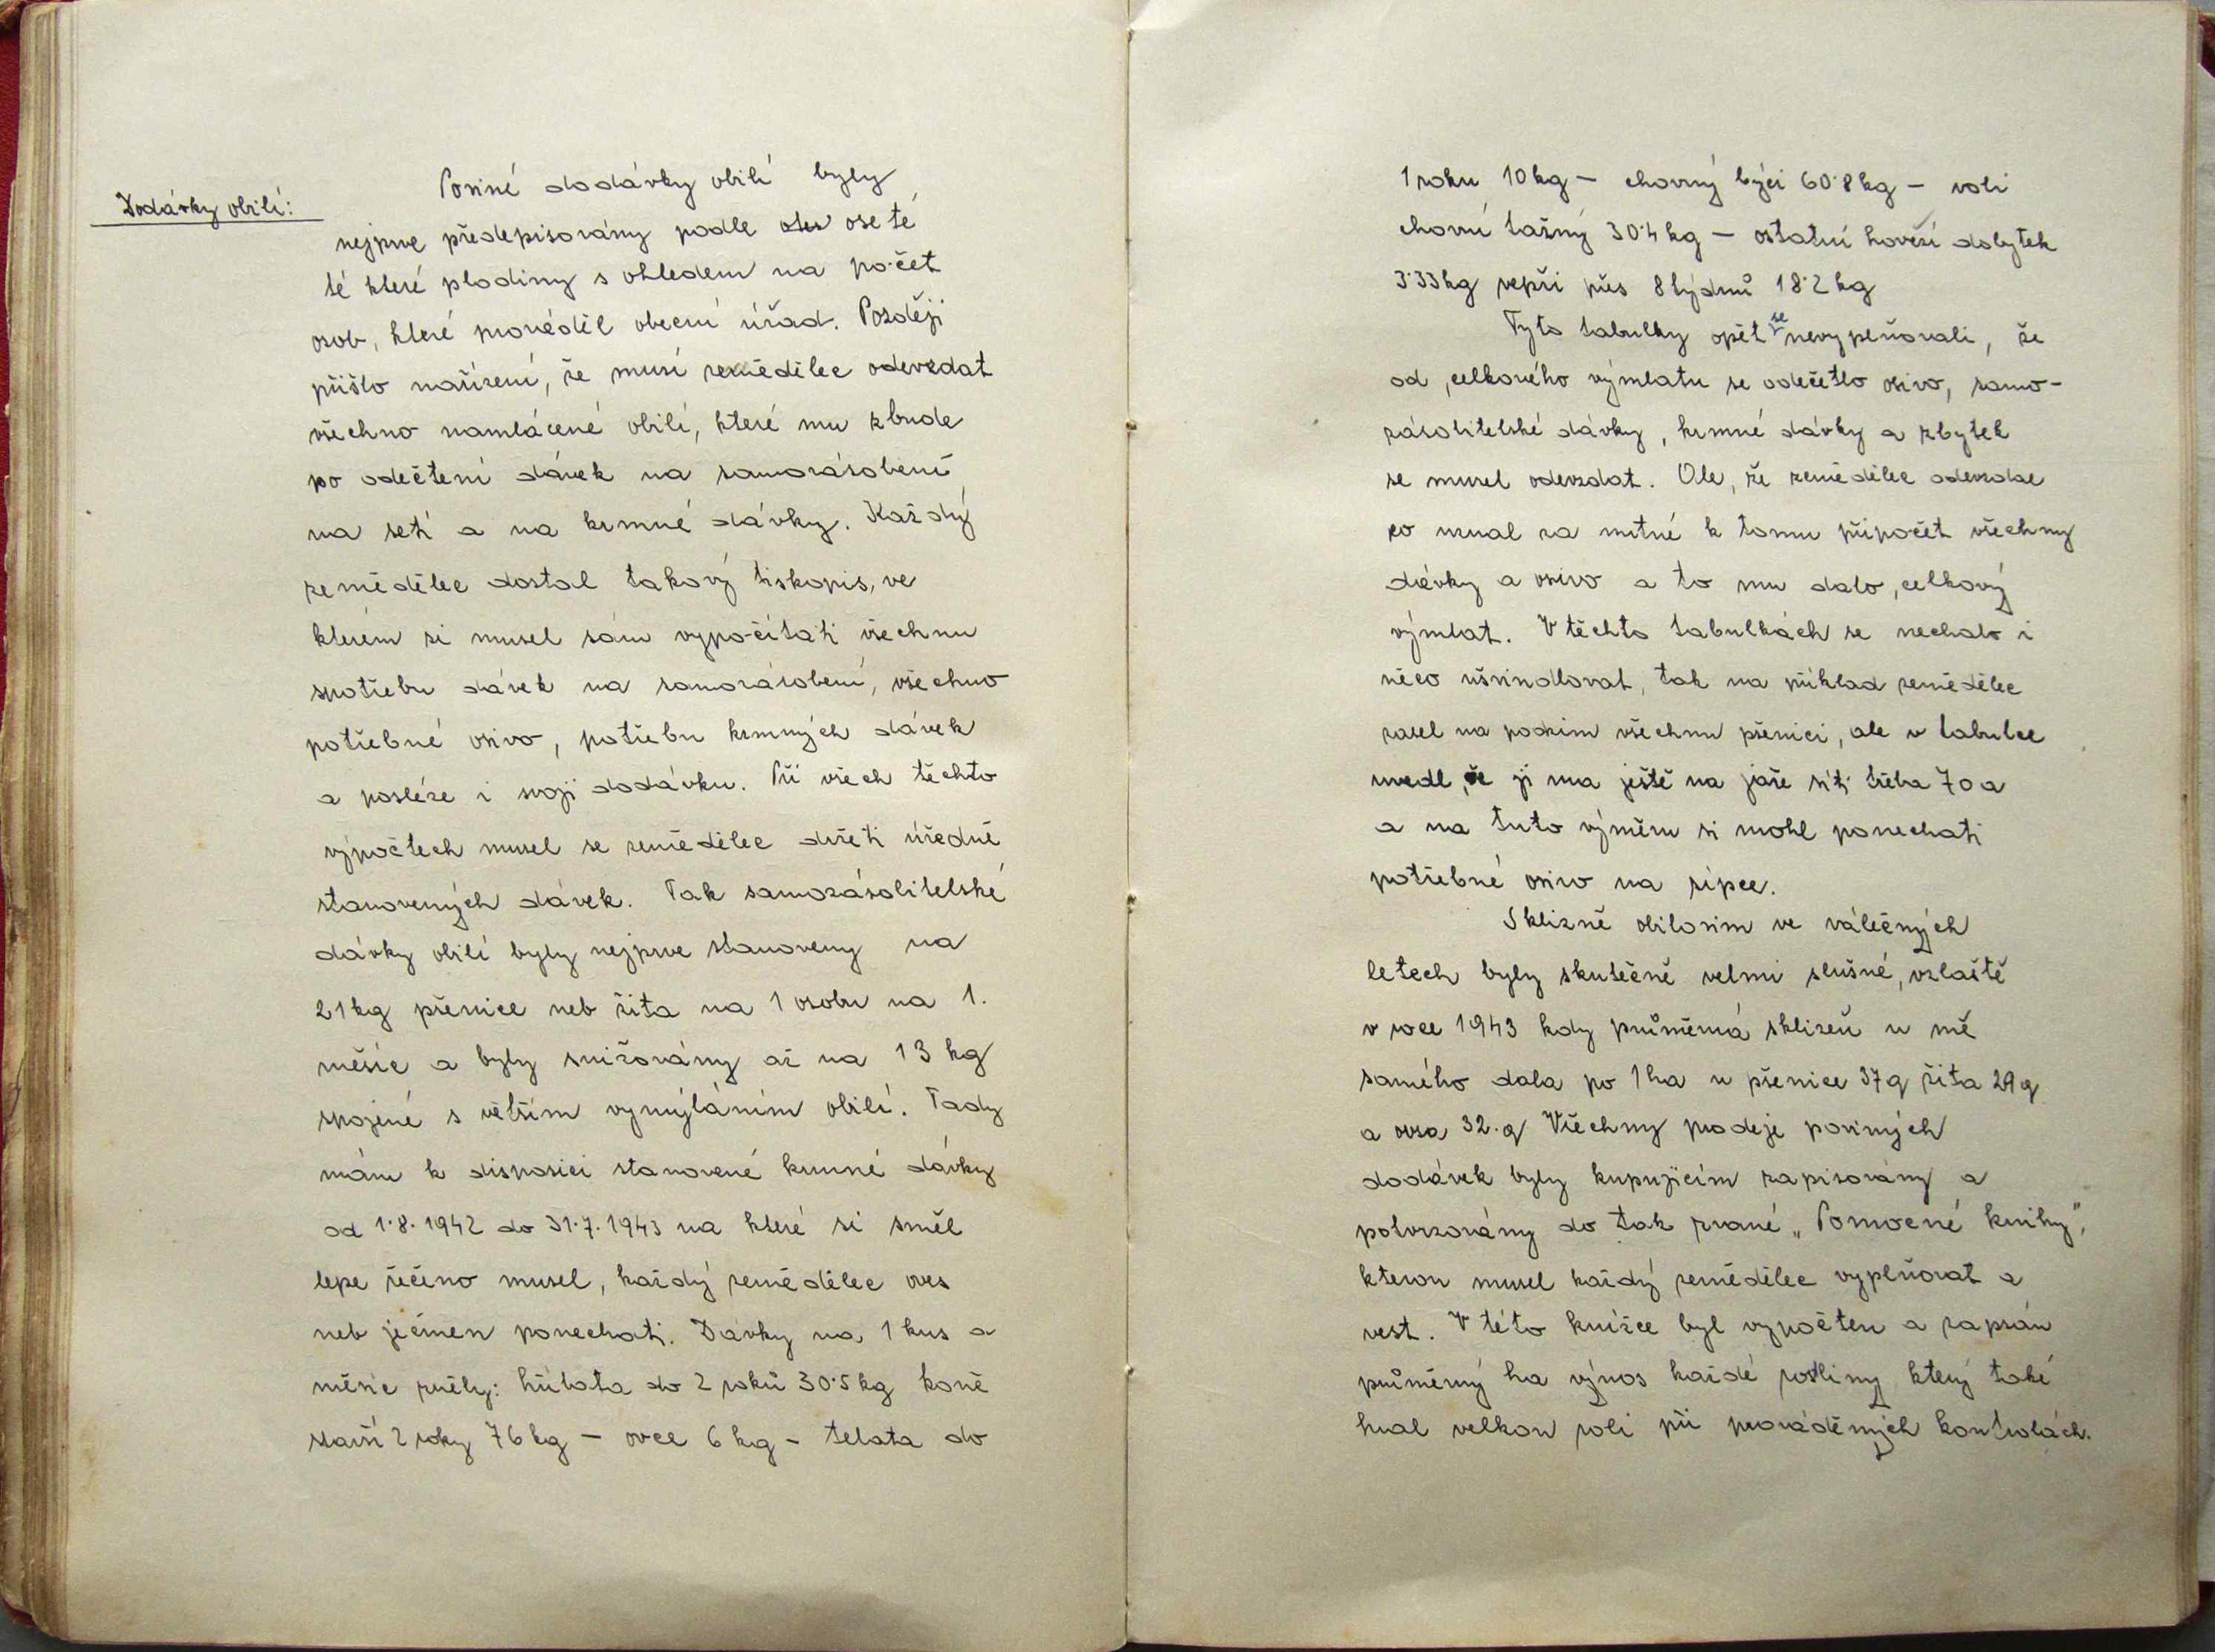 Dodávky obilí:
Poviné dodávky obilí byly
nejprve předepisovány podle oseté
té které plodiny s ohledem na počet
osob, které prováděl obecní úřad. Později
přišlo nařízení, že musí zemědělec odevzdat
všechno namlácené obilí, které mu zbude
po odečtení dávek na samozásobení
na setí a na krmné dávky. Každý
zemědělec dostal takový tiskopis, ve
kterém si musel sám vypočítati všechnu
spotřebu dávek na samozásobení, všechno
potřebné osivo, potřebu krmných dávek
a posléze i svoji dodávku. Při všech těchto
výpočtech musel se zemědělec držeti úředně
stanovených dávek. Tak samozásobitelské
dávky obilí byly nejprve stanoveny na
21 kg pšenice neb žita na 1 osobu na 1.
měsíc a byly snižovány až na 13 kg
spojené s větším vymýláním obilí. Tady
mám k disposici stanovené krmné dávky
od 1·8·1942 do 31·7·1943 na které si směl
lepe řečeno musel, každý zemědělec oves
neb ječmen ponechati. Dávky na 1 kus a
měsíc zněly: hříbata do 2 roků 30·5 kg koně
starší 2 roky 76 kg – ovce 6 kg – telata do
1 roku 10 kg – chovný býci 60·8 kg – voli
chovní tažný 30·4 kg – ostatní hovězí dobytek
3·33 kg vepři přes 8 týdnů 18·2 kg
Tyto tabulky opět se nevyplňovali, že
od celkového výmlatu se odečetlo osivo, samo-
zásobitelské dávky, krmné dávky a zbytek
se musel odevzdat. Ale, že zemědělec odevzdal
co uznal za nutné k tomu připočet všechny
dávky a osivo a to mu dalo, celkový
výmlat. V těchto tabulkách se nechalo i
něco ušvindlovat, tak na příklad zemědělec
zasel na podzim všechnu pšenici, ale v tabulce
uvedl, že ji ma ještě na jaře síti třeba 70 a
a na tuto výměru si mohl ponechati
potřebné osivo na sípce.
Sklizně obilovin ve válečných
letech byly skutečně velmi slušné, vzlaště
v roce 1943 kdy průměrná sklizeň u mě
samého dala po 1 ha u pšenice 37 q žita 29 q
a ovsa 32·q Všechny prodeje poviných
dodávek byly kupujícím zapisovány a
potvrzovány do tak zvané „Pomocné knihy",
kterou musel každý zemědělec vyplňovat a
vest. V této knížce byl vypočten a zapsán
průměrný ha výnos každé rostliny který také
hral velkou roli při prováděných kontrolách.